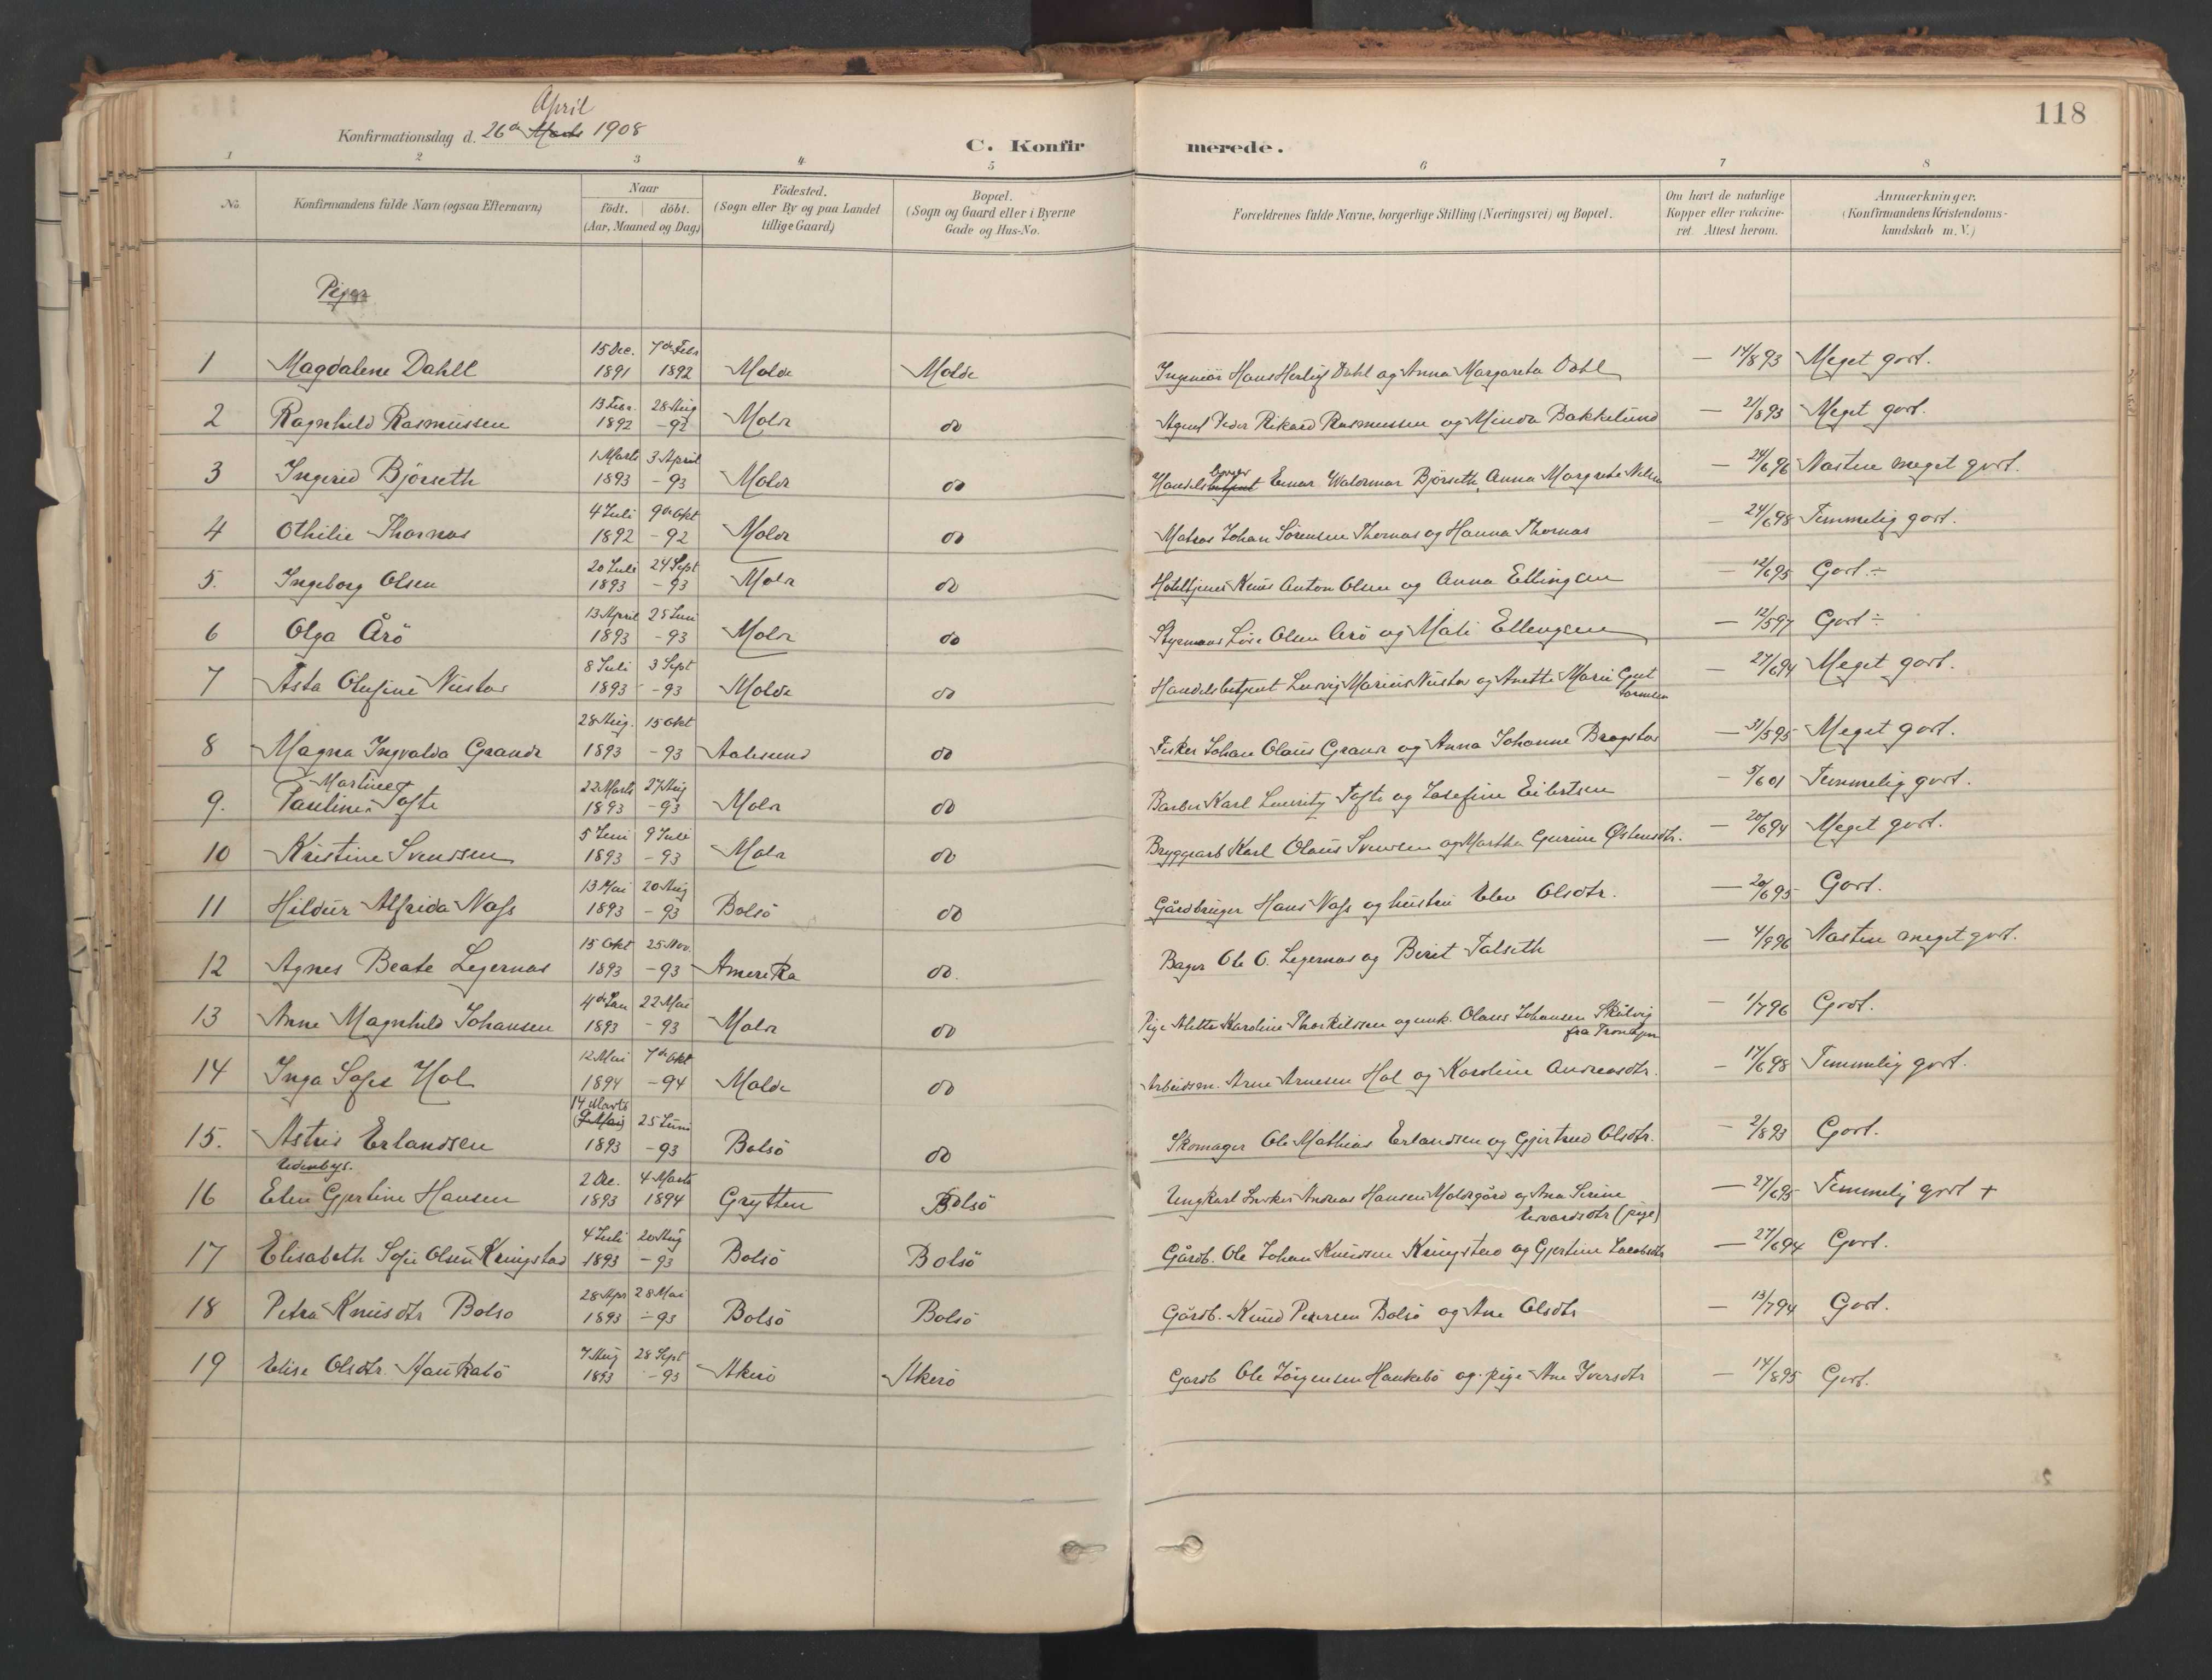 118
April
Konfirmationsdag d. 26de Marts 1908
C. Konfirmerede.
1 2 3 4 5 6 7 8
No.
Konfirmandens fulde Navn (ogsaa Efternavn)
Naar
født. døbt.
(Aar, Maaned og Dag)
Födested.
(Sogn eller By og paa Landet
tillige Gaard)
Bopæl.
(Sogn og Gaard eller i Byerne
Gade og Hus-No.
Forældrenes fulde Navne, borgerlige Stilling (Næringsvei) og Bopæl.
Om havt de naturlige
Kopper eller vakcine-
ret. Attest herom.
Anmærkninger.
(Konfirmandens Kristendoms-
kundskab m. V.)
Piger
15 Dec. 7de Febr
1 Magdalene Dahll 1891 1892 Molde Molde Ingeniör Hans Herlof Dahl og Anna Margareta Dahl — 14/8 93 Meget godt.
13 Febr. 28 Aug
2 Ragnhild Rasmussen 1892 -92 Molde do Agent Peder Rikard Rasmussen og Minda Bakkelund — 21/8 93 Meget godt.
1 Marts 3 April
3 Ingerid Björseth 1893 -93 Molde do Handelsbetjent Einar Waldemar Björseth, Anna Margrete Nilsen — 24/6 96 Næsten meget godt.
4 Juli 9de Okt
4 Othilie Thornæs 1892 -92 Molde do Matros Johan Sörensen Thornæs og Hanna Thornæs — 24/6 98 Temmelig godt.
20 Juli 24 Sept
5. Ingeborg Olsen 1893 -93 Molde do Hoteltjener Knut Anton Olsen og Anna Ellingsen — 12/6 95 Godt ÷
13 April 25 Juni
6 Olga Årö 1893 -93 Molde do Styrmand Olsen Årö og Mali Ellengsen — 12/5 97 Godt ÷
8 Juli 3 Sept
7 Asta Olufine Nustad 1893 -93 Molde do Handelsbetjent Ludvig Marius Nustad og Anette Marie — 27/6 94 Meget godt.
28 Aug. 15 Okt
8 Magna Ingvalda Grande 1893 -93 Aalesund do Fisker Johan Olaus Grande og Anna Johanne Bragstad — 31/5 95 Meget godt.
Martine 22 Marts 27 Aug
9. Pauline Tofte 1893 -93 Molde do Barber Karl Lauritz Tofte og Josefine Eilertsen — 5/6 01 Temmelig godt.
5 Juni 9 Juli
10 Kristine Svendsen 1893 -93 Molde do Bryggearb Karl Olaus Svendsen og Martha Gurine Østensdtr. — 20/6 94 Meget godt.
13 Mai 20 Aug
11 Hildur Alfrida Næss 1893 -93 Bolsö do Gårdbruger Hans Næss og hustru Elen Olsdtr. — 20/6 95 Godt.
15 Okt 25 Nov.
12 Agnes Beate Legernæs 1893 -93 Amerika do. Bager Ole O. Legernæs og Berit Talseth — 4/9 96 Næsten meget godt.
4de Jan 22 Mai
13 Anne Magnhild Johansen 1893 -93 Molde do Pige Alette Karoline Thorkildsen og unk. Olaus Johansen Skålvig — 1/7 96 Godt.
fra Trondhjem
12 Mai 7de Okt
14 Inga Sofie Hol 1894 -94 Molde do Arbeidsm. Arne Arnesen Hol og Karoline Andreasdtr. — 17/6 98 Temmelig godt.
14 Marts
(9 Mai) 25 Juni
15. Astrid Erlandsen 1893 -93 Bolsö do Skomager Ole Mathias Erlandsen og Gjertrud Olsdtr. — 2/8 93 Godt.
Udenbys. 2 Dec. 4 Marts
16 Elen Gjertine Hansen 1893 1894 Grytten Bolsö Ungkarl Andreas Hansen Moldegård og Ana Serine — 27/6 95 Temmelig godt +
Edvardsdtr (pige)
4 Juli 20 Aug
17 Elisabeth Sofie Olsen Kringstad 1893 -93 Bolsö Bolsö Gårdb. Ole Johan Knudsen Kringstad og Gjertine Jacobsdtr — 27/6 94 Godt.
28 Apr 28 Mai
18 Petra Knudsdtr Bolsö 1893 -93 Bolsö Bolsö Gårdb. Knud Petersen Bolsö og Ane Olsdtr — 13/7 94 Godt.
7 Aug 28 Sept
19 Elise Olsdtr. Haukabö 1893 -93 Akerö Akerö Gårdb Ole Jörgensen Haukebö og pige Ane Iversdtr — 14/8 95 Godt.